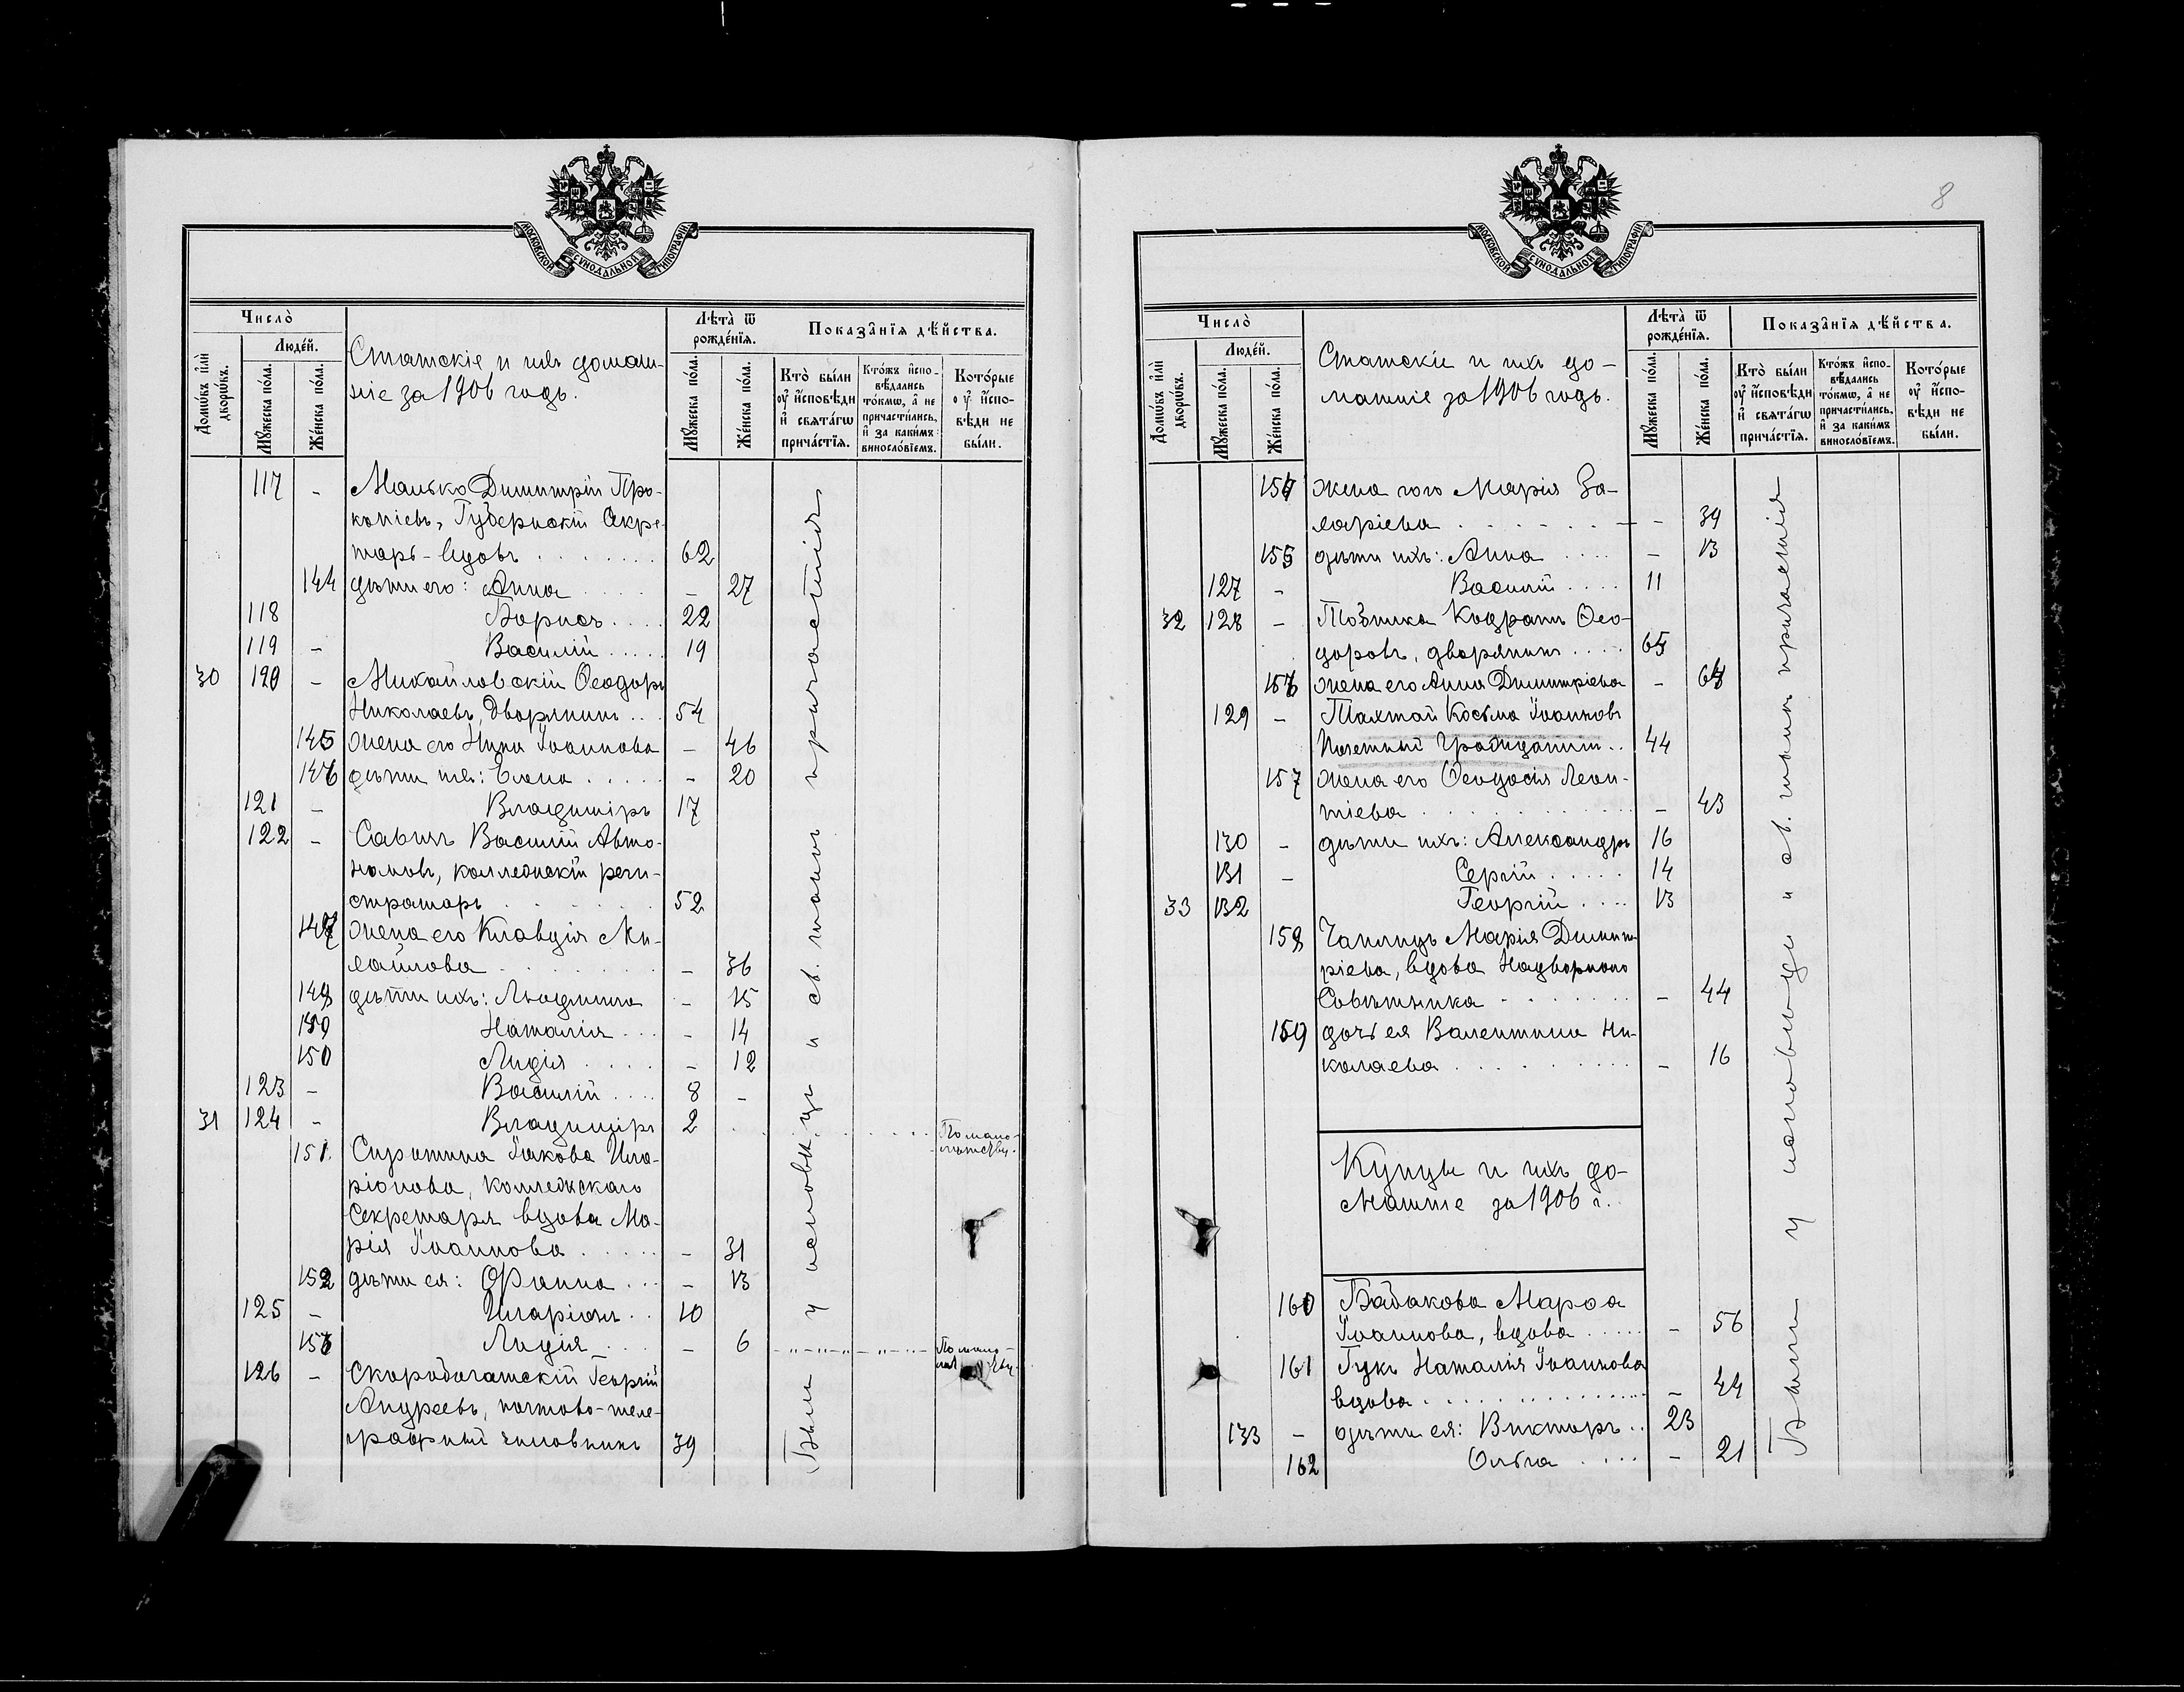 МОСКОВСКОЙ СУНОДАЛЬНОЙ ТИПОГРАФІИ
Число̀
Людéй.
Домѡ́въ и҆лѝ дворѡ́въ.
Мꙋ́жеска по́ла.
Же́нска по́ла.
Статскіе и ихъ домаш-
ніе за 1906 годъ.
Лѣ́та ѿ рожде́нїѧ.
Мꙋ́жеска по́ла.
Же́нска по́ла.
Показа̑нїѧ дѣ́йства.
Кто̀ бы́ли оу҆ и҆́сповѣди и҆ свѧта́гѡ прича́стїѧ.
Кто́жъ и҆спо-вѣ́дались то́кмѡ, а҆ не причасти́лись, и҆ за каки́мъ винослóвїемъ.
Кото́рые оу҆ и҆́спо-вѣди не бы́ли.
117 - Манько Димитрій Про-
копіевъ, Губернскій Секре-
тарь - вдовъ . . . . . . . 62
144 дѣти его: Анна . . . . . - 27
118 Борисъ . . . . 22
119 - Василій . . . . . 19
30 120 - Михайловскій Ѳеодоръ
Николаевъ, дворянинъ . . . 54
145 жена его Нина Іоаннова - 46
146 дѣти ихъ: Елена . . . . . - 20
121 - Владиміръ 17
122 - Савичъ Василій Авто-
номовъ, коллежскій реги-
страторъ . . . . . . 52
147 жена его Клавдія Ми-
хайлова . . . . . . . . - 36
148 дѣти ихъ: Людмила - 15
149 Наталія . . . - 14
150 Лидія . . . . - 12
123 - Василій . . . . 8 -
31 124 - Владиміръ 2 . . . . . . . . По мало-
лѣтству.
151. Сиротина Іакова Ила-
ріонова, коллежскаго
Секретаря вдова Ма-
рія Іоаннова . . . . . - 31
152 дѣти ея: Фаина . . . - 13
125 - Иларіонъ . . 10
153 Лидія . . . - 6 - „ - „ - „ - „ - По мало-
126 - Скоробогатскій Георгій
Андреевъ, почтово-теле-
графный чиновникъ 39
Были у исповѣди и св. таинъ причастія
8
МОСКОВСКОЙ СУНОДАЛЬНОЙ ТИПОГРАФІИ
Число̀
Людéй.
Домѡ́въ и҆лѝ дворѡ́въ.
Мꙋ́жеска по́ла.
Же́нска по́ла.
Статскіе и ихъ до-
машніе за 1906 годъ.
Лѣ́та ѿ рожде́нїѧ.
Мꙋ́жеска по́ла.
Же́нска по́ла.
Показа̑нїѧ дѣ́йства.
Кто̀ бы́ли оу҆ и҆́сповѣди и҆ свѧта́гѡ прича́стїѧ.
Кто́жъ и҆спо-вѣ́дались то́кмѡ, а҆ не причасти́лись, и҆ за каки́мъ винослóвїемъ.
Кото́рые оу҆ и҆́спо-вѣди не бы́ли.
154 жена его Марія За-
харіева . . . . . . . - 39
155 дѣти ихъ: Анна . . . . - 13
127 - Василій . . . . 11
32 128 - Кодратъ Ѳео-
доровъ, дворянинъ . . . . 65
156 жена его Анна Димитріева -
129 - Тахтай Косьма Іоанновъ
Почетный Гражданинъ . . 44
157 жена его Ѳеодосія Леон-
тіева . . . . . . . . . . - 43
130 - дѣти ихъ: Александръ 16
131 - Сергій . . . . . 14
33 132 Георгій . . . . 13
158 Чаплицъ Марія Димит-
ріева, вдова Надворнаго
Совѣтника . . . . . . . - 44
159 дочь ея Валентина Ни-
колаева . . . . . . . . . - 16
Купцы и ихъ до-
машніе за 1906 г.
160 Бабакова Марѳа
Іоаннова, вдова . . . . . - 56
161 Гукъ Наталія Іоаннова
вдова . . . . . . . . . . . - 44
133 - дѣти ея: Викторъ . . 23
162 Ольга . . . . - 21
Были у исповѣди и св. таинъ причастія